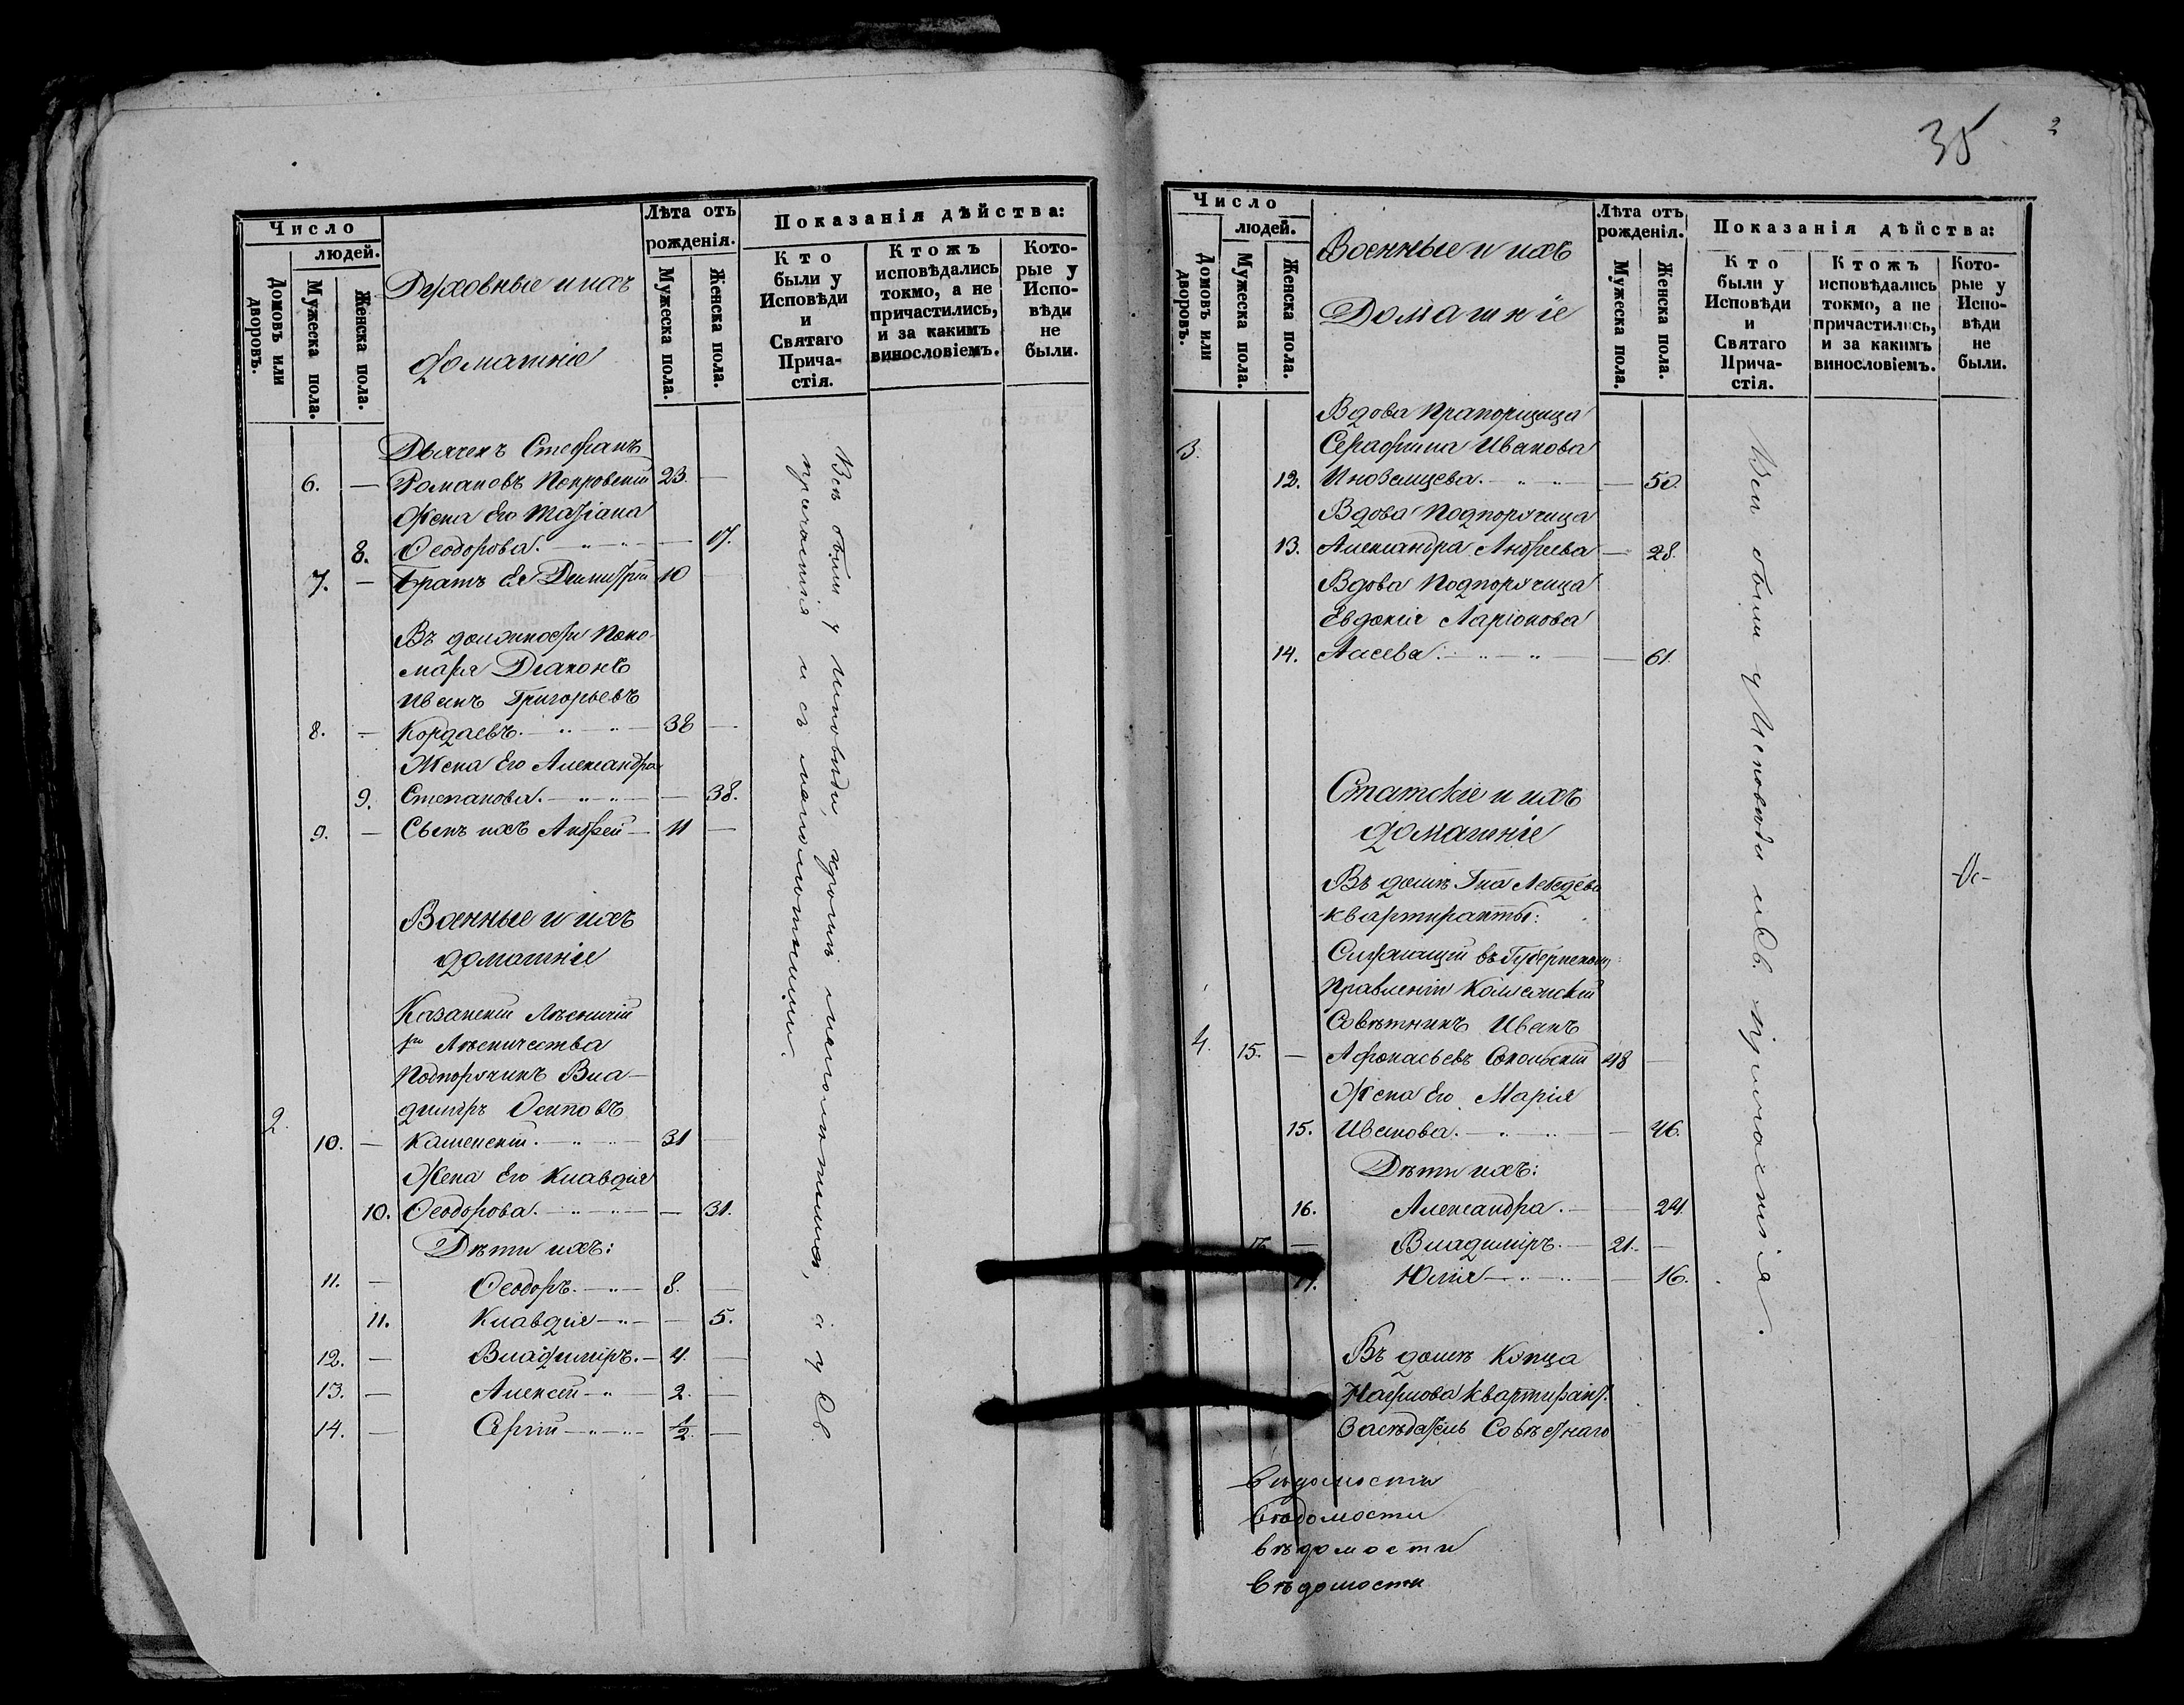 Число
людей.
Домовъ или дворовъ.
Мужеска пола.
Женска пола.
Духовные и ихъ
домашніе
Лѣта отъ
рожденія.
Мужеска пола.
Женска пола.
Показанія дѣйства:
Кто
были у
Исповѣди
и
Святаго
Прича-
стія.
Ктожъ
исповѣдались
токмо, а не
причастились,
и за какимъ
винословіемъ.
Кото-
рые у
Испо-
вѣди
не
были.
Дьячекъ Стефанъ
6. — Романовъ Покровскій 23. —
Жена Его Татіана
8. Ѳеодорова. — — 17.
7. — Братъ Ея Димитрій 10 —
Въ должности Поно-
маря Діаконъ
Иванъ Григорьевъ
8. — Кордаевъ. — 38 —
Жена Его Александра
9. Степанова. — — 38.
9. — Сынъ ихъ Андрей — 11 —
Военные и ихъ
домашніе
Казанскій Лѣсничій
Лѣсничества
Подпоручикъ Вла-
2. димiръ Осиповъ
10. — Каменскій. — 31 —
Жена Его Клавдія
10. Ѳеодорова. — — 31.
Дѣти ихъ:
11. — Ѳеодоръ. — 8. —
11. Клавдія — — 5.
12. — Владиміръ. — 4. —
13. — Алексѣй — 2. —
14. — Сергій — 1/2. —
Всѣ были у исповѣди, кромѣ малолѣтнихъ, а у Св.
причастія и съ малолѣтними.
35
2
Число
людей.
Домовъ или дворовъ.
Мужеска пола.
Женска пола.
Военные и ихъ
Домашніе
Лѣта отъ
рожденія.
Мужеска пола.
Женска пола.
Показанія дѣйства:
Кто
были у
Исповѣди
и
Святаго
Прича-
стія.
Ктожъ
исповѣдались
токмо, а не
причастились,
и за какимъ
винословіемъ.
Кото-
рые у
Испо-
вѣди
не
были.
Вдова Прапорщица
3. Серафима Иванова
12. Иноземцева. — — 50.
Вдова Подпоручица
13. Александра Андреева — 28.
Вдова Подпоручица
Евдокія Ларіонова
14. — — 61.
Статскіе и ихъ
домашніе
Въ домѣ Гна Лебедева
квартиранты:
Служащій въ Губернскомъ
Правленіи Коллежскій
Совѣтникъ Иванъ
4. 15. — Афонасьевъ Сокольскій 48 —
Жена Его Марія
15. Иванова. — — 46.
Дѣти ихъ:
16. Александра. — — 24.
— Владиміръ. — 21. —
17. Юлія — — 16.
Въ домѣ Купца
квартирант.
Засѣдатель Совѣстнаго
Всѣ были у Исповѣди и Св. причастія.
вѣдомости
вѣдомости
вѣдомости
вѣдомости